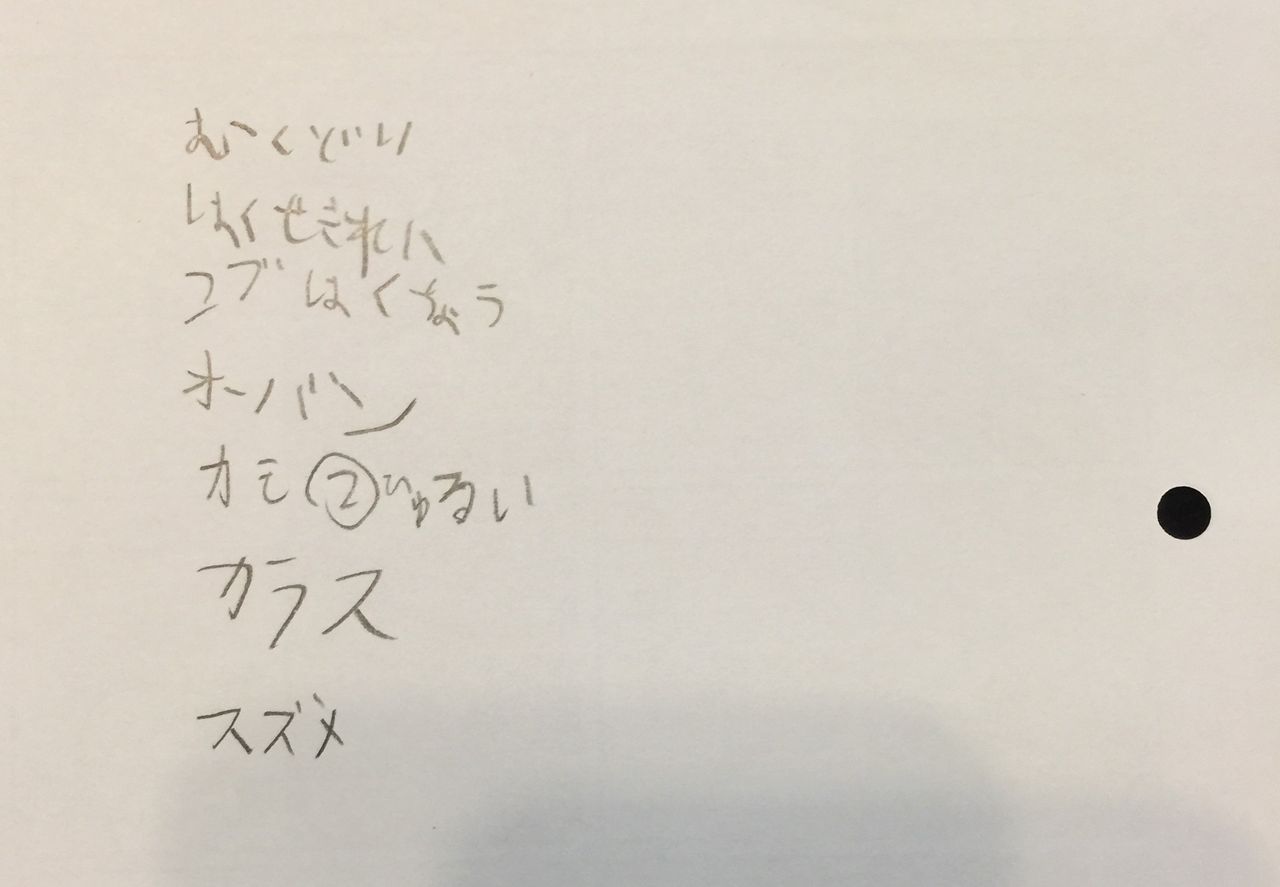 むくどり
はくせきれい
コブはくちょう
オーバン
カモ②しゅるい
カラス
スズメ